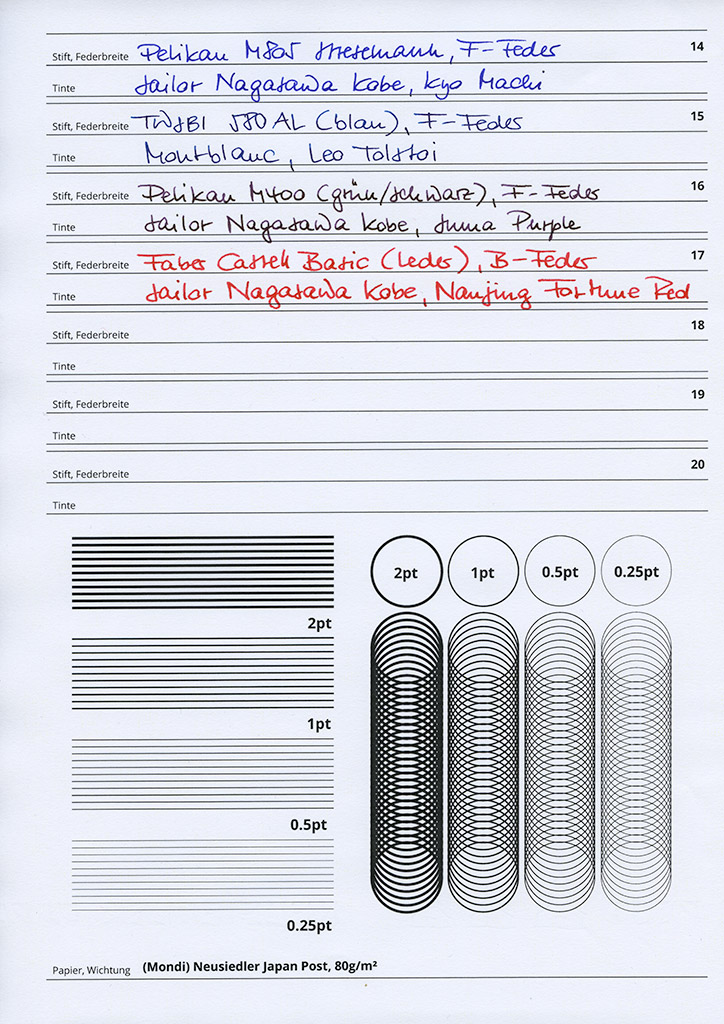 Stift, Federbreite Pelikan M805 Stresemann, F-Feder 14
Tinte Sailor Nagasawa Kobe, Kyo Machi
Stift, Federbreite TWSBI 580 AL (blau), F-Feder 15
Tinte Montblanc, Leo Tolstoi
Stift, Federbreite Pelikan M400 (grün/schwarz), F-Feder 16
Tinte Sailor Nagasawa Kobe, Suma Purple
Stift, Federbreite Faber Castell Basic (Leder), B-Feder 17
Tinte Sailor Nagasawa Kobe, Nanjing Fortune Red
Stift, Federbreite 18
Tinte
Stift, Federbreite 19
Tinte
Stift, Federbreite 20
Tinte
2pt 1pt 0.5pt 0.25pt
2pt
1pt
0.5pt
0.25pt
Papier, Wichtung (Mondi) Neusiedler Japan Post, 80g/m²